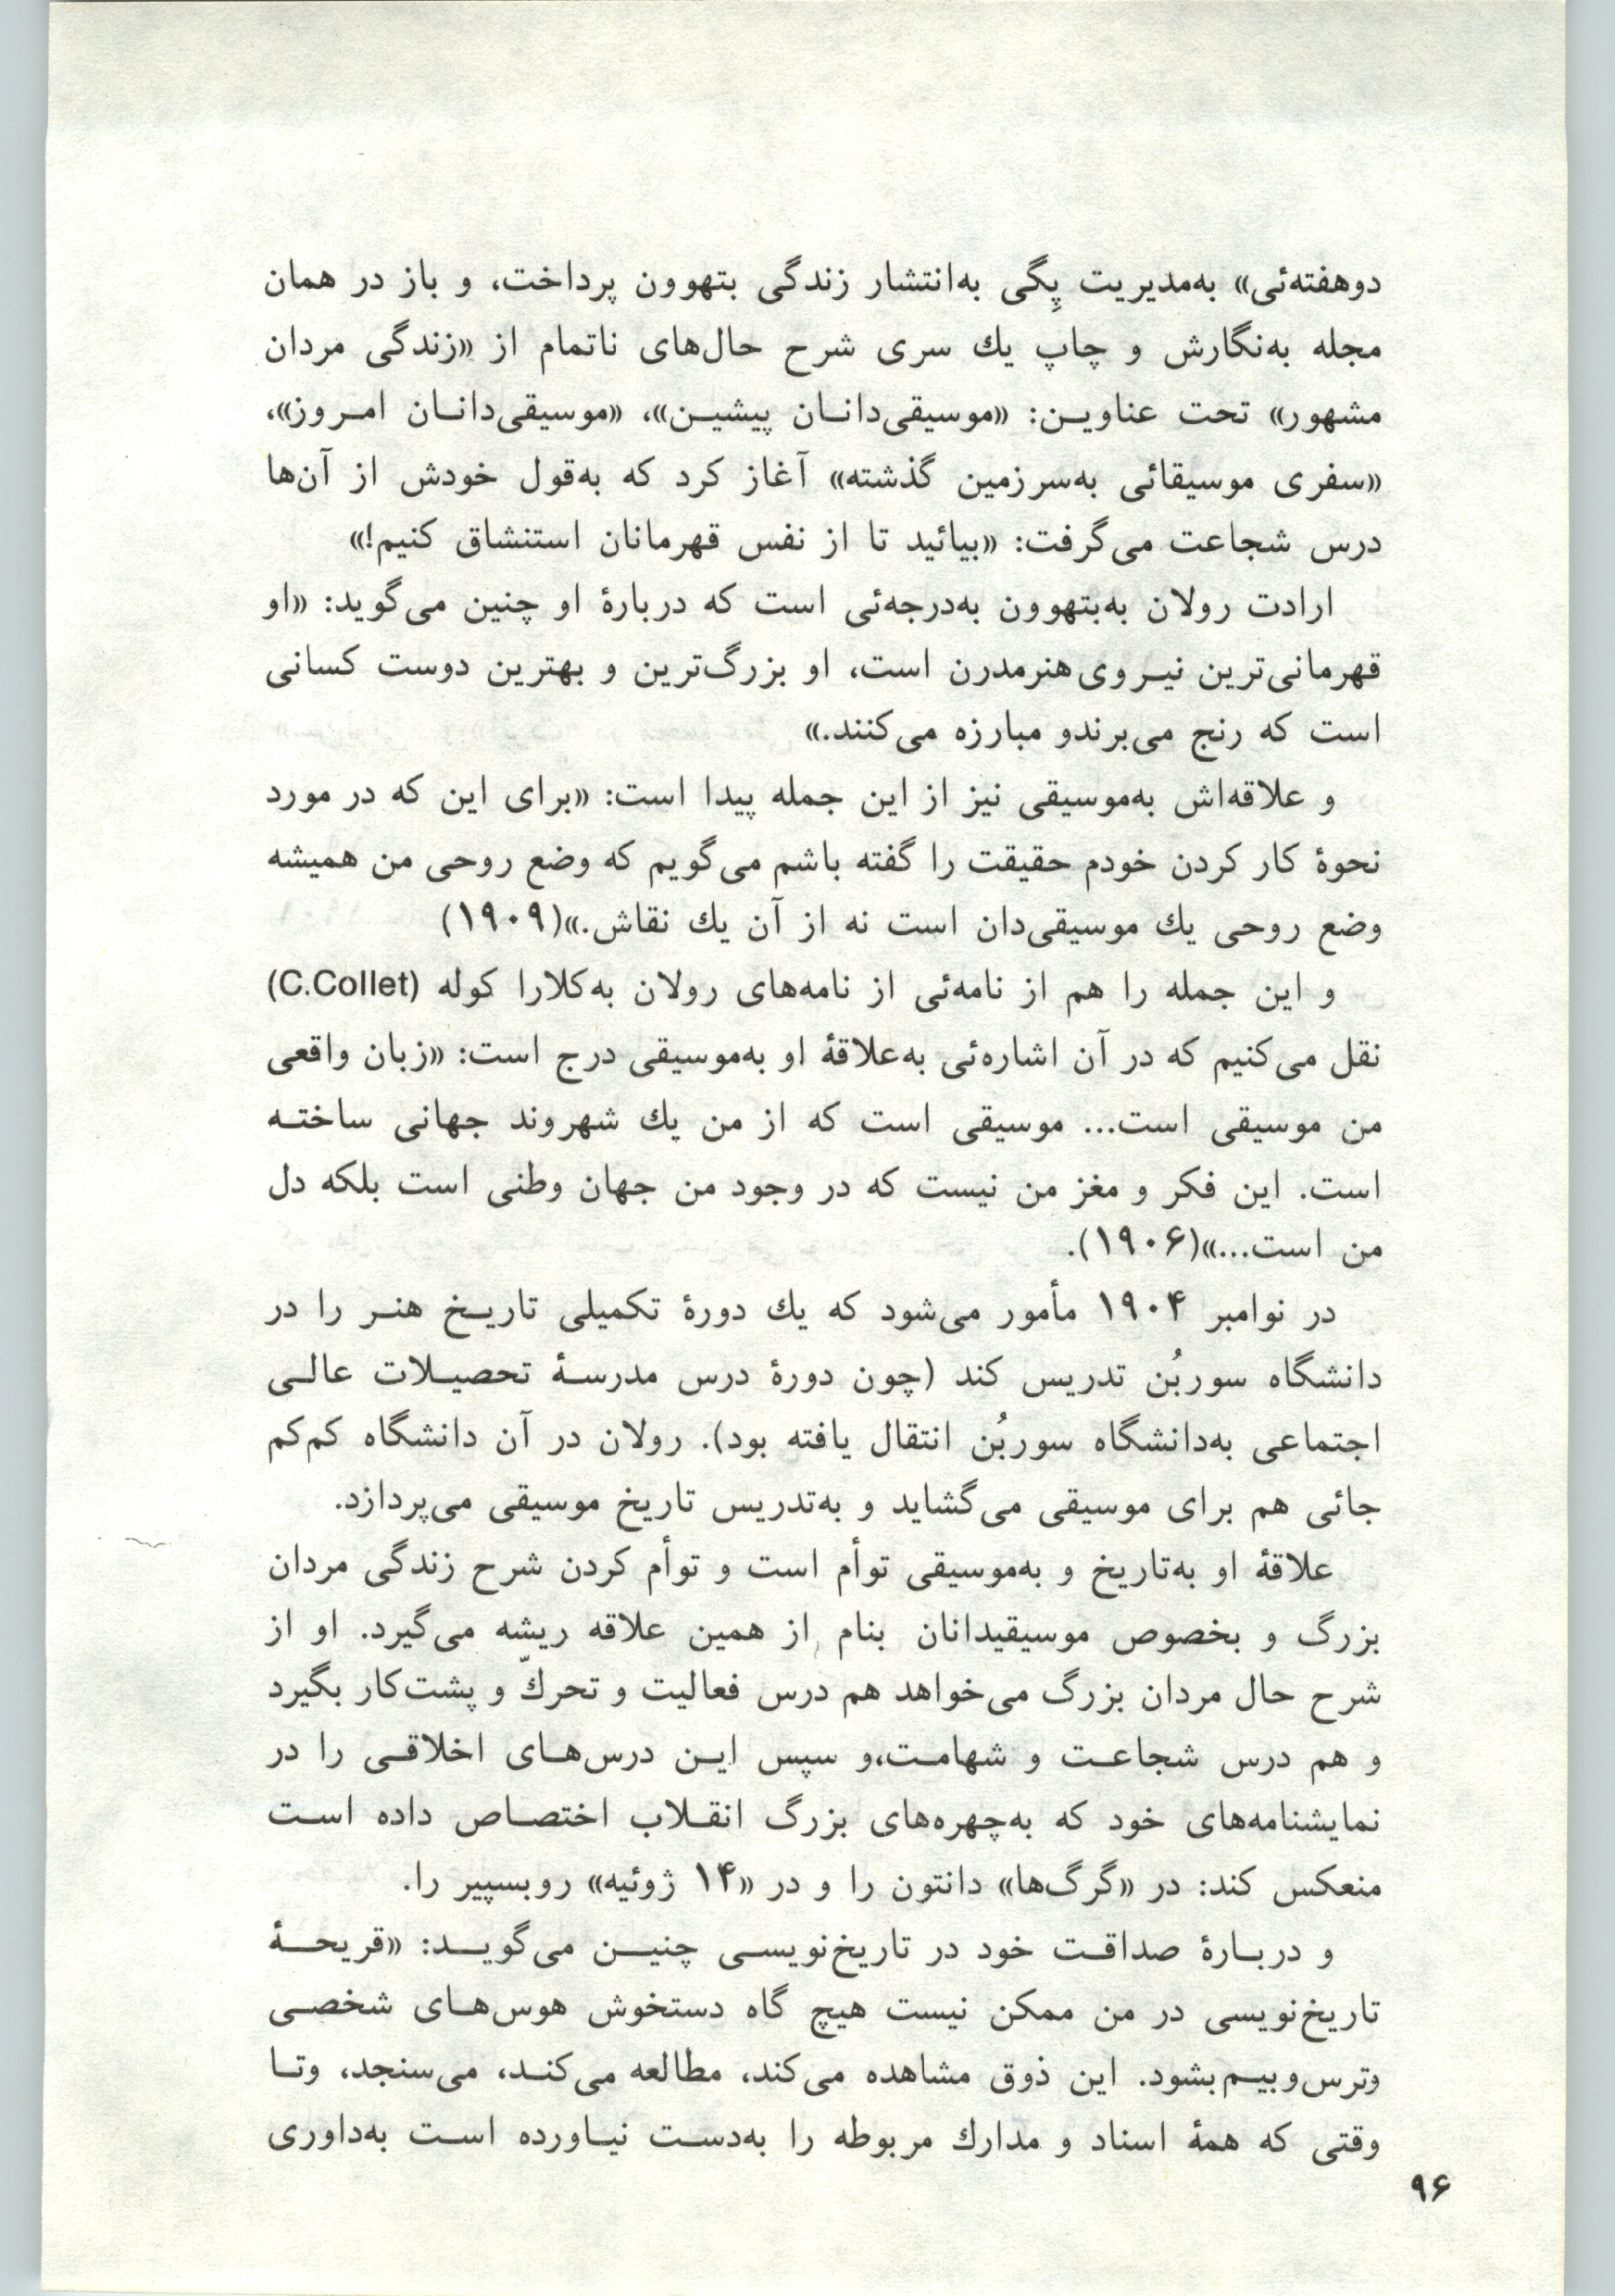 دوهفته‌ئی» به‌مدیریت پِگی به‌انتشار زندگی بتهوون پرداخت، و باز در همان
مجله به‌نگارش و چاپ یك سری شرح حال‌های ناتمام از «زندگی مردان
مشهور» تحت عناویـن: «موسیقی‌دانـان پیشیـن»، «موسیقی‌دانـان امـروز»،
«سفری موسیقائی به‌سرزمین گذشته» آغاز کرد که به‌قول خودش از آن‌ها
درس شجاعت می‌گرفت: «بیائید تا از نفس قهرمانان استنشاق کنیم!»
ارادت رولان به‌بتهوون به‌درجه‌ئی است که دربارهٔ او چنین می‌گوید: «او
قهرمانی‌ترین نیـروی هنرمدرن است، او بزرگ‌ترین و بهترین دوست کسانی
است که رنج می‌برندو مبارزه می‌کنند.»
و علاقه‌اش به‌موسیقی نیز از این جمله پیدا است: «برای این که در مورد
نحوهٔ کار کردن خودم حقیقت را گفته باشم می‌گویم که وضع روحی من همیشه
وضع روحی یك موسیقی‌دان است نه از آن یك نقاش.»(۱۹۰۹)
و این جمله را هم از نامه‌ئی از نامه‌های رولان به‌کلارا کوله (C.Collet)
نقل می‌کنیم که در آن اشاره‌ئی به‌علاقهٔ او به‌موسیقی درج است: «زبان واقعی
من موسیقی است... موسیقی است که از من یك شهروند جهانی ساختـه
است. این فکر و مغز من نیست که در وجود من جهان وطنی است بلکه دل
من است...»(۱۹۰۶).
در نوامبر ۱۹۰۴ مأمور می‌شود که یك دورهٔ تکمیلی تاریـخ هنـر را در
دانشگاه سوربُن تدریس کند (چون دورهٔ درس مدرسـهٔ تحصیـلات عالـی
اجتماعی به‌دانشگاه سوربُن انتقال یافته بود). رولان در آن دانشگاه کم‌کم
جائی هم برای موسیقی می‌گشاید و به‌تدریس تاریخ موسیقی می‌پردازد.
علاقهٔ او به‌تاریخ و به‌موسیقی توأم است و توأم کردن شرح زندگی مردان
بزرگ و بخصوص موسیقیدانان بنام از همین علاقه ریشه می‌گیرد. او از
شرح حال مردان بزرگ می‌خواهد هم درس فعالیت و تحركّ و پشت‌کار بگیرد
و هم درس شجاعـت و شهامـت،و سپس ایـن درس‌هـای اخلاقـی را در
نمایشنامه‌های خود که به‌چهره‌های بزرگ انقـلاب اختصـاص داده اسـت
منعکس کند: در «گرگ‌ها» دانتون را و در «۱۴ ژوئیه» روبسپیر را.
و دربـارهٔ صداقـت خود در تاریخ‌نویسـی چنیـن می‌گویـد: «قریحـهٔ
تاریخ‌نویسی در من ممکن نیست هیچ گاه دستخوش هوس‌هـای شخصـی
وترس‌وبیـم‌بشود. این ذوق مشاهده می‌کند، مطالعه می‌کنـد، می‌سنجد، وتـا
وقتی که همهٔ اسناد و مدارك مربوطه را به‌دسـت نیـاورده اسـت به‌داوری
۹۶